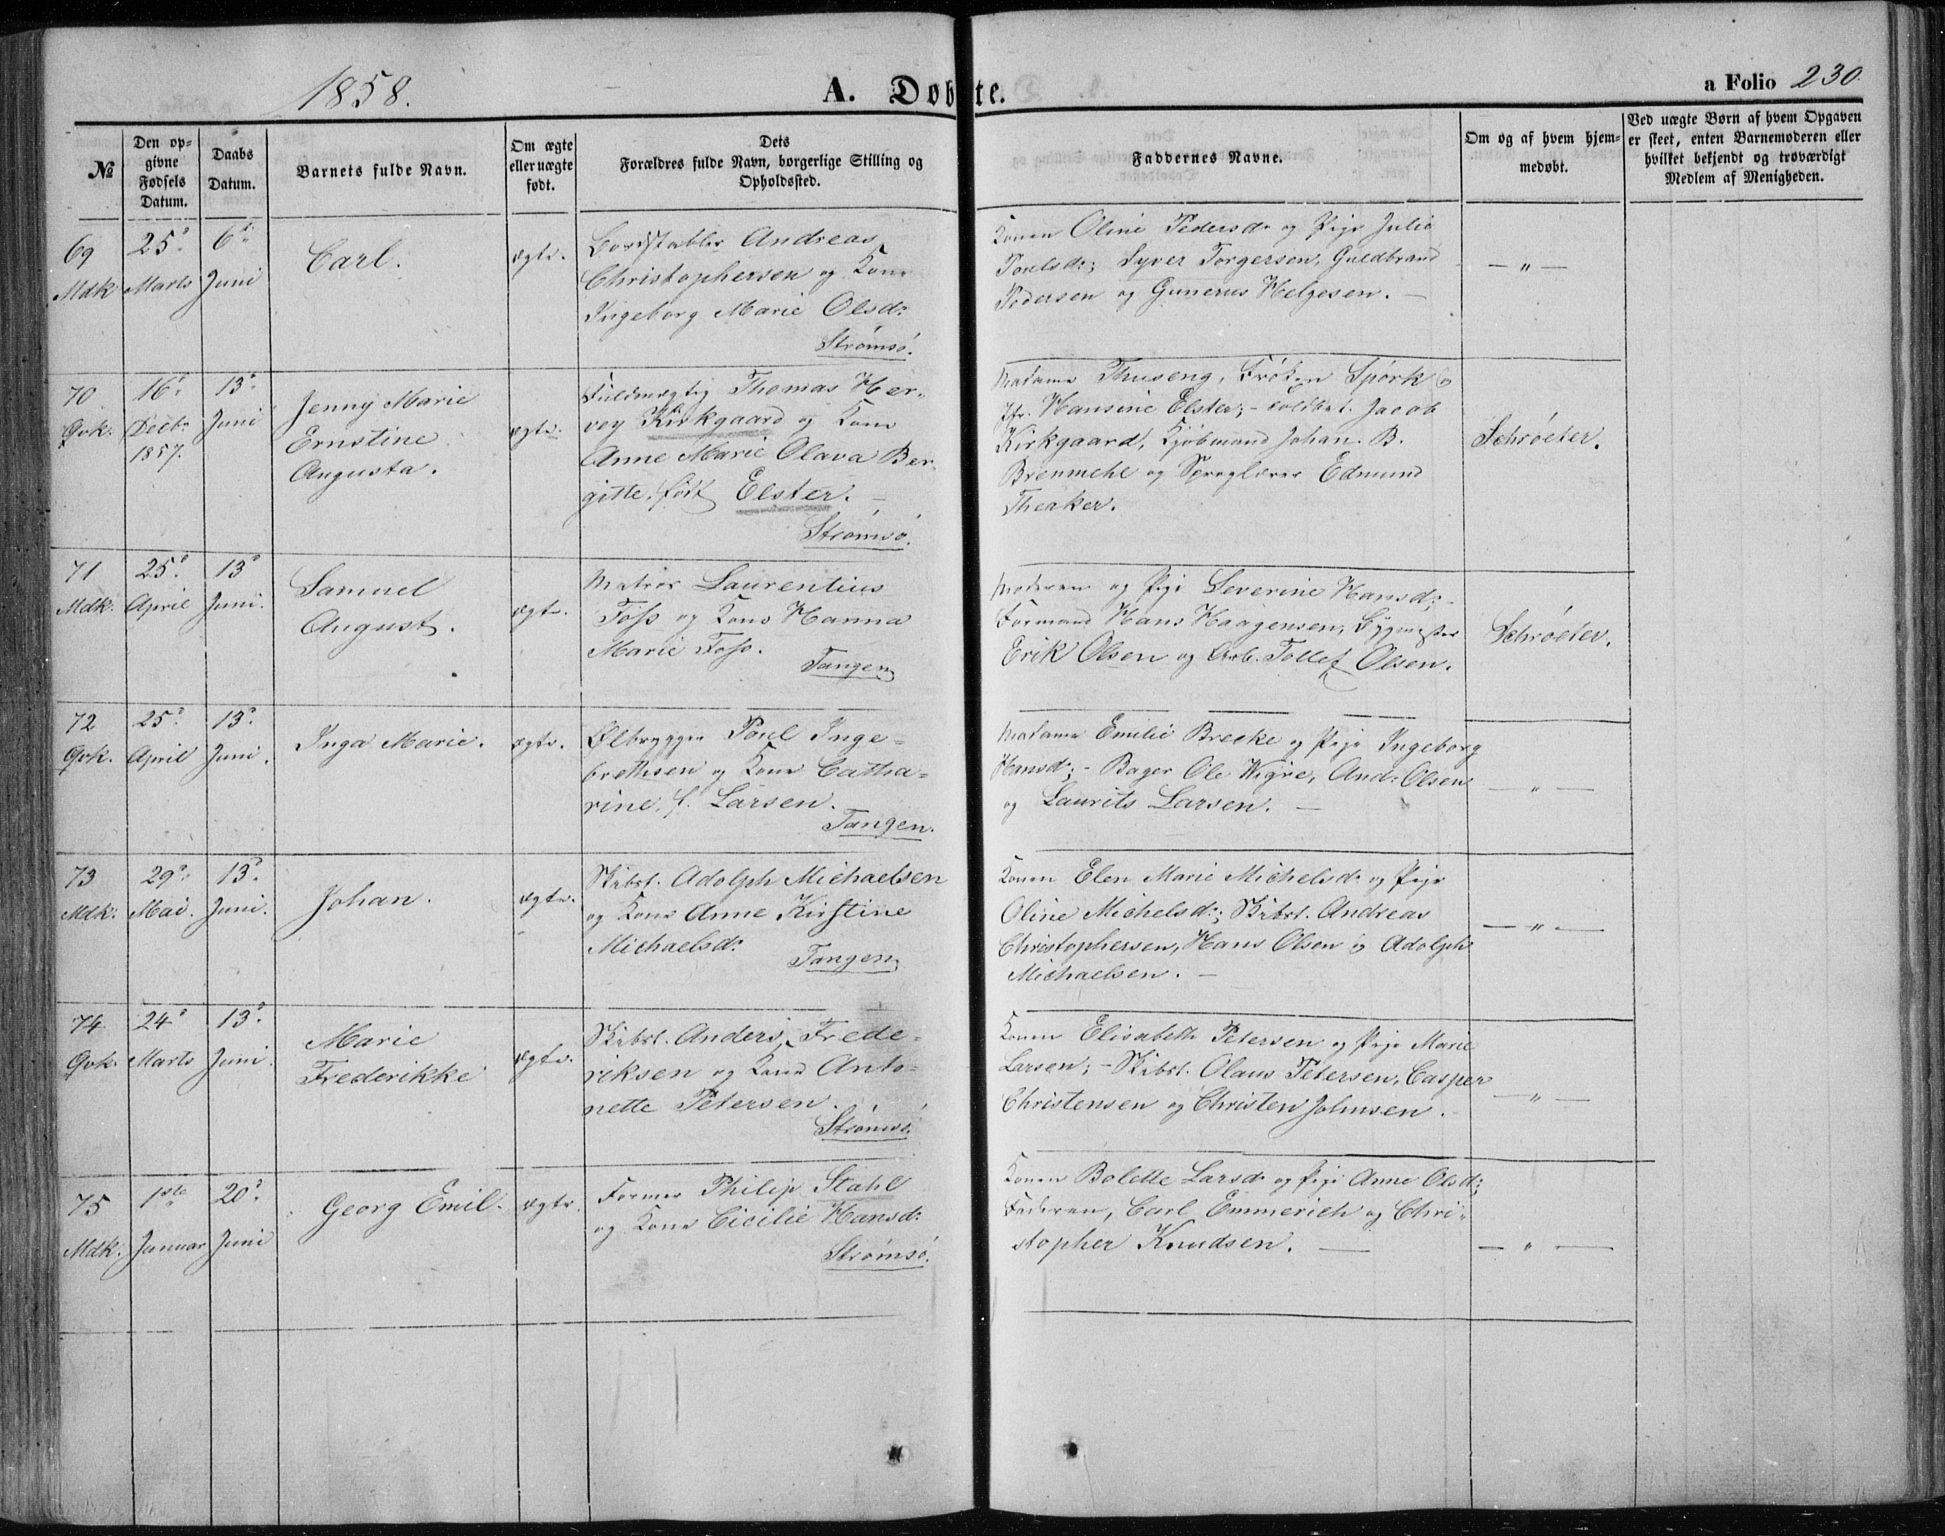 1858.
A. Døbte.
a Folio 230.
№
Den op-
givne
Fødsels
Datum.
Daabs
Datum.
Barnets fulde Navn.
Om ægte
eller uægte
født.
Dets
Forældres fulde Navn, borgerlige Stilling og
Opholdssted.
Faddernes Navne.
Om og af hvem hjem-
medøbt.
Ved uægte Børn af hvem Opgaven
er skeet, enten Barnemoderen eller
hvilket bekjendt og troværdigt
Medlem af Menigheden.
69
Mdk
25de
Marts
6te
Juni
Carl.
ægte.
Bordstabler Andreas
Christophersen og Kone
Ingeborg Marie Olsdr
Strømsø.
Konen Oline Pedersdr og Pige Julie
Poulsdr; Syver Torgersen, Guldbrand
Pedersen og Gunerus Helgesen. —
— " —
70
Qvk.
16de
Decbr
1857.
13de
Juni
Jenny Marie
Ernstine
Augusta.
ægte.
Fuldmægtig Thomas Her-
vey Kirkgaard og Kone
Anne Marie Olava Ber-
gitte, født Elster. —
Strømsø.
Madame Thuseng, Frøken Spørk og
Jfr. Hansine Elster; Jacob
Kirkgaard, Kjøbmand Johan. B.
Brenmehl og Sproglærer Edmund
Theaker.
Schrøeter.
71
Mdk.
25de
April
13de
Juni.
Samuel
August.
ægte.
Matros Laurentius
Foss og Kone Hanna
Marie Foss.
Tangen
Moderen og Pige Severine Hansdr; -
Formand Hans Haagensen, Bygmester
Erik Olsen og Arb. Tollef Olsen.
Schrøeter.
72
Qvk.
25de
April
13de
Juni.
Inga Marie.
ægte.
Ølbrygger Poul Inge-
brethsen og Kone Catha-
rine, f. Larsen.
Tangen.
Madame Emilie Brecke og Pige Ingeborg
Hansdr; - Bager Ole Wigre, And: Olsen
og Laurits Larsen. —
— " —
73
Mdk.
29de
Mai.
13de
Juni.
Johan.
ægte.
Skibst. Adolph Michaelsen
og Kone Anne Kirstine
Michaelsdr
Tangen
Konen Elen Marie Michelsdr og Pige
Oline Michelsdr; Skibst. Andreas
Christophersen, Hans Olsen og Adolph
Michaelsen. —
— " —
74
Qvk.
24de
Marts
13de
Juni.
Marie
Frederikke
ægte.
Skibst. Anders Frede-
riksen og Kone Anto-
nette Petersen.
Strømsø.
Konen Elisabeth Petersen og Pige Marie
Larsen; - Skibst. Olaus Petersen, Casper
Christensen og Christen Johnsen.
— " —
75
Mdk.
1ste
Januar
20de
Juni
Georg Emil.
ægte.
Former Philip Stahl
og Kone Cicilie Hansdr
Strømsø.
Konen Bolette Larsdr og Pige Anne Olsdr;
Faderen, Carl Emmerich og Chri-
stopher Knudsen. —
— " —